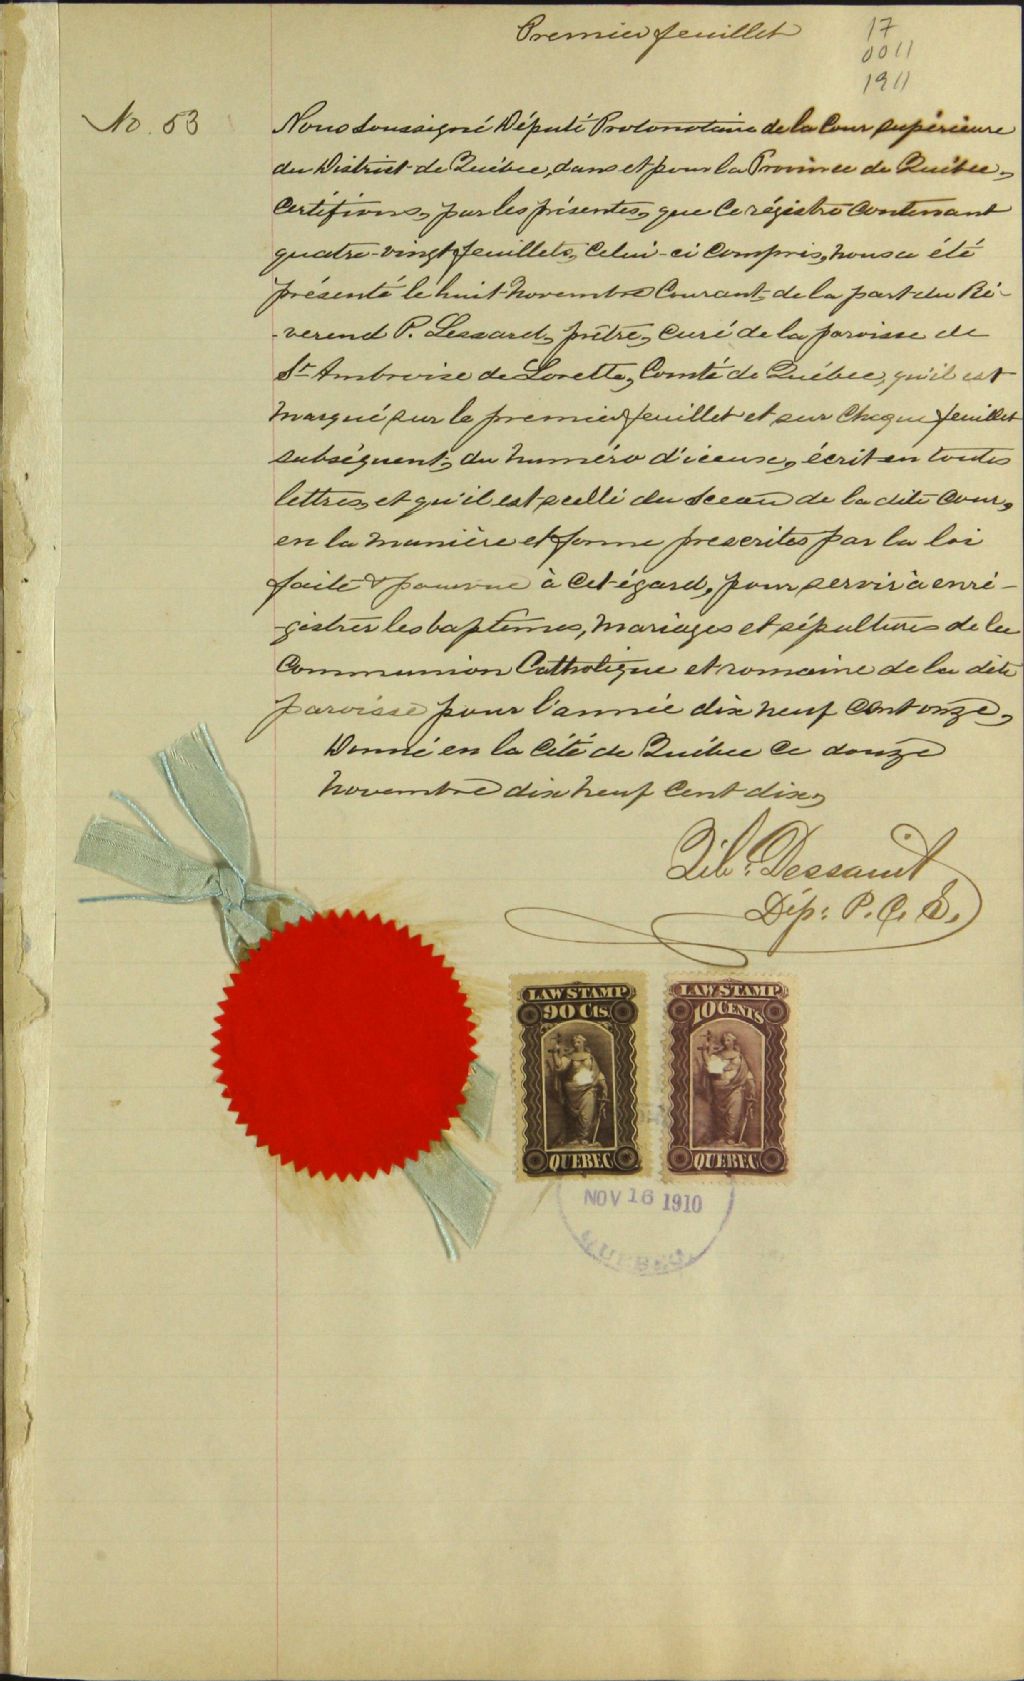 Premier feuillet
17
0011
1911
No. 53
Nous Soussigné Député Protonotaire de la Cour supérieure
du District de Québec, dans et pour la Province de Québec,
Certifions, par les présentes, que ce régistre contenant
quatre-vingt feuillets, celui-ci compris, nous a été
présenté le huit Novembre Courant, de la part du Ré-
-verend P. Lessard, prêtre, curé de la paroisse de
St Ambroise de Lorette, Comté de Québec, qu'il est
Marqué sur le premier feuillet et sur chaque feuillet
subséquent, du numéro d'iceux, écrit en toutes
lettres, et qu'il est scellé du sceau de la dite Cour,
en la manière et forme prescrites par la loi
faite & pourvue à cet égard, pour servir à enré-
-gistrer les baptêmes, mariages et sépultures de la
Communion Catholique et romaine de la dite
paroisse pour l'année dix neuf cent onze,
Donné en la Cité de Québec ce douze
Novembre dix neuf cent dix,
Dessault
Dép: P. C. S.
LAW STAMP
90 Cts.
QUEBEC
LAW STAMP
10 CENTS
QUEBEC
NOV 16 1910
QUEBEC